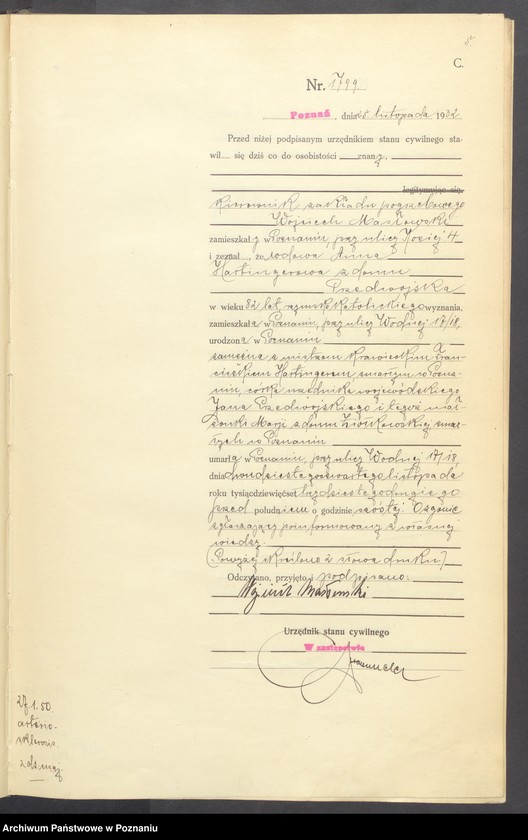 C.
Nr. 1799.
Poznań, dnia 25 listopada 1932
Przed niżej podpisanym urzędnikiem stanu cywilnego sta-
wił się dziś co do osobistości znany,
legitymując się,
Kierownik zakładu pogrzebowego
Wojciech Masłowski
zamieszkały w Poznaniu, przy ulicy Koziej 4
i zeznał, że wdowa Anna
Hartingerowa z domu
Przedwojska
w wieku 82 lat, rzymsko katolickiego wyznania,
zamieszkała w Poznaniu, przy ulicy Wodnej 17/18,
urodzona w Poznaniu
zamężna z mistrzem krawieckim Fran-
ciszkiem Hartingerem, zmarłym w Pozna-
niu, córka urzędnika wojewódzkiego
Jana Przedwojskiego i tegoż mał-
żonki Marji z domu Ziółkowskiej, zmar-
łych w Poznaniu
umarła w Poznaniu, przy ulicy Wodnej 17/18,
dnia dwudziestego czwartego listopada
roku tysiąc dziewięćset trzydziestego drugiego
przed południem o godzinie szóstej. O zgonie
zgłaszający poinformowany z własnej
wiedzy.
(Powyżej skreślono 2 słowa druku)
Odczytano, przyjęto i podpisano:
Wojciech Masłowski
Urzędnik stanu cywilnego
W zastępstwie
27.1.50
arterio-
skleroris.
Archiwum Państwowe w Poznaniu